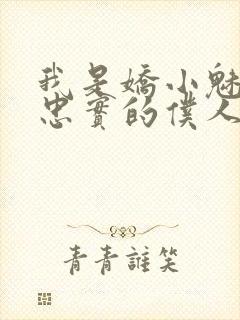 我是嬌小魅
忠實的僕人
青青誰笑